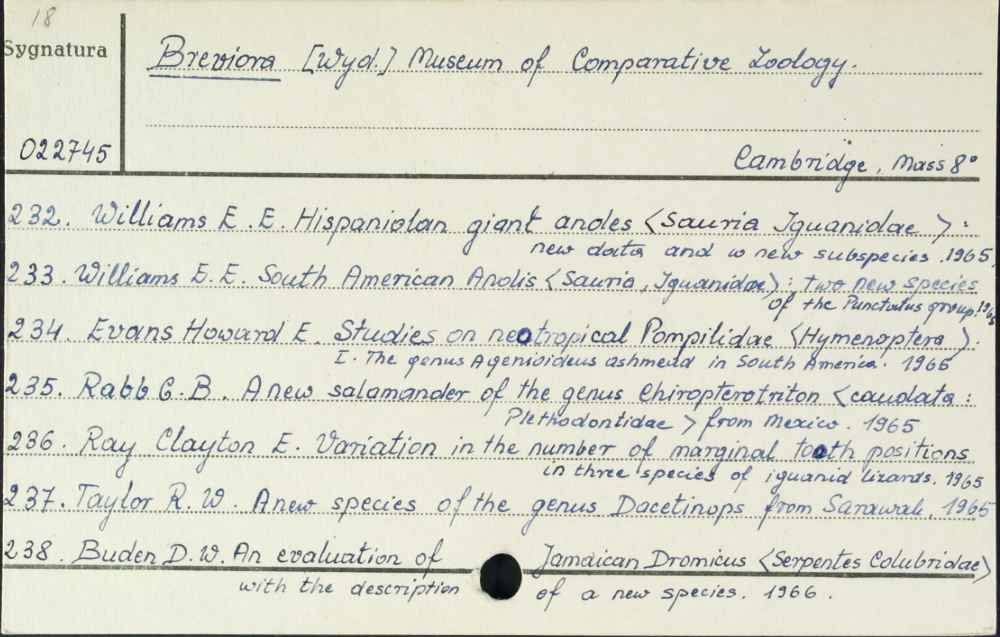 18
Sygnatura
Breviora [Wyd.] Museum of Comparative Zoology.
022745
Cambridge, Mass 8°
232. Williams E. E. Hispaniolan giant anoles <Sauria Iguanidae> :
new data and a new subspecies. 1965.
233. Williams E. E. South American Anolis <Sauria, Iguanidae> : two new species
of the Punctatus group.
234. Evans Howard E. Studies on neotropical Pompilidae <Hymenoptera>.
I. The genus Agenioideus ashmead in South America. 1965
235. Rabb G. B. A new salamander of the genus Chiropterotriton <caudata :
Plethodontidae> from Mexico. 1965
236. Ray Clayton E. Variation in the number of marginal tooth positions
in three species of iguanid lizards. 1965
237. Taylor R. W. A new species of the genus Dacetinops from Sarawak. 1965
238. Buden D. W. An evaluation of Jamaican Dromicus <Serpentes Colubridae>
with the description of a new species. 1966.